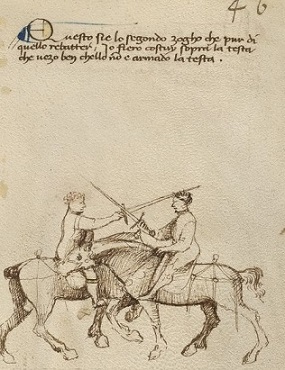 46
Questo sie lo segondo zogho che pur di
quello rebatter, Io fiero costuy sopra la testa
che vezo ben chello non e armado la testa .